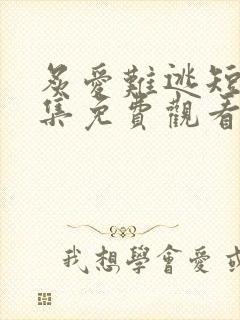 炙愛難逃短
集免費觀看
我想學會愛或